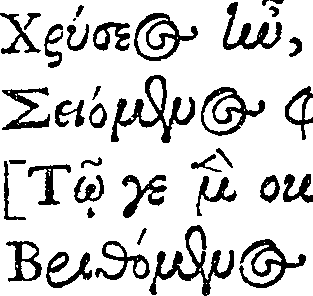 Χρύσεος ἦν,
Σειόμενος
[Τῷ γε μὲν
Βριθόμενος